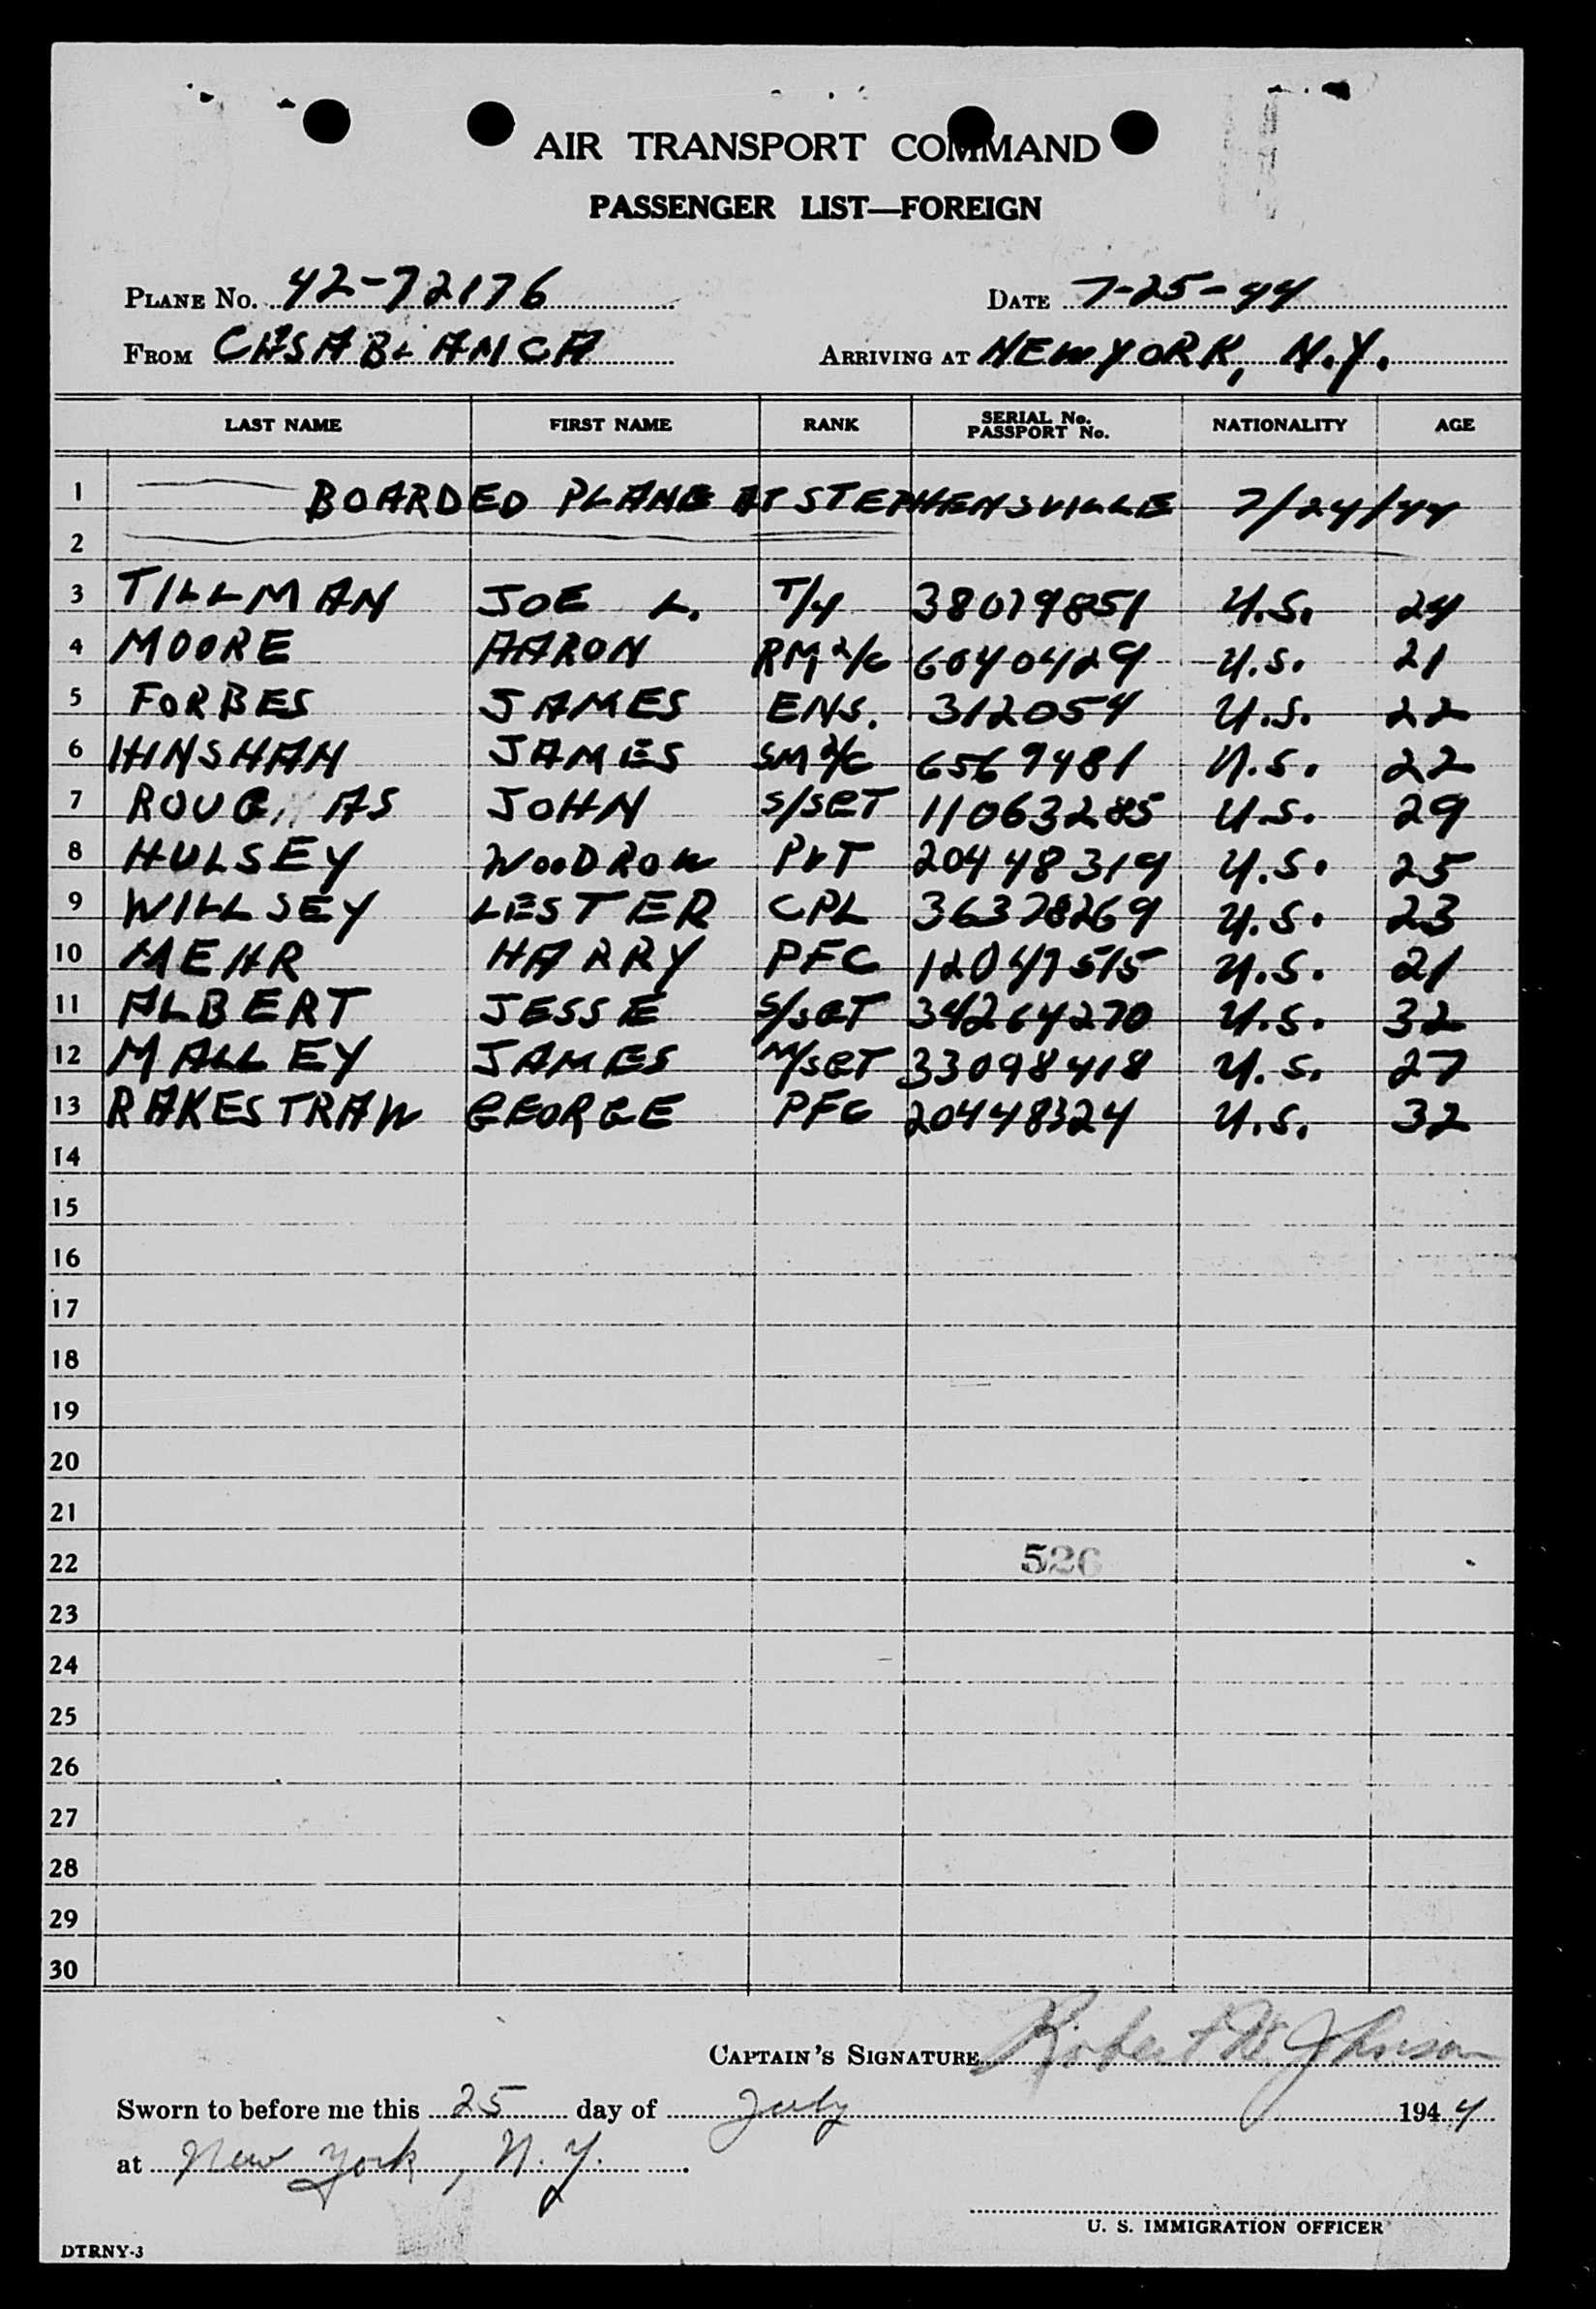 AIR TRANSPORT COMMAND
PASSENGER LIST—FOREIGN
PLANE NO. 42-72176 DATE 7-25-44
FROM CASABLANCA ARRIVING AT NEW YORK, N.Y.
LAST NAME FIRST NAME RANK SERIAL No. PASSPORT No. NATIONALITY AGE
1 BOARDED PLANE AT STEPHENSVILLE 7/24/44
2
3 TILLMAN JOE L. T/4 38079851 U.S. 24
4 MOORE AARON RM 2/C 6040429 U.S. 21
5 FORBES JAMES ENS. 312054 U.S. 22
6 HINSHAW JAMES SM 2/C 6569481 U.S. 22
7 JOHN S/SGT 11063285 U.S. 29
8 HULSEY WOODROW PVT 20448319 U.S. 25
9 WILLSEY LESTER CPL 36378269 U.S. 23
10 MEHR HARRY PFC 12047515 U.S. 21
11 ALBERT JESSE S/SGT 34264270 U.S. 32
12 MALLEY JAMES M/SGT 33098418 U.S. 27
13 RAKESTRAW GEORGE PFC 20448324 U.S. 32
14
15
16
17
18
19
20
21
22 526
23
24
25
26
27
28
29
30
CAPTAIN'S SIGNATURE Robert W. Johnson
Sworn to before me this 25 day of July 1944
at New York, N.Y.
U. S. IMMIGRATION OFFICER
DTRNY-3